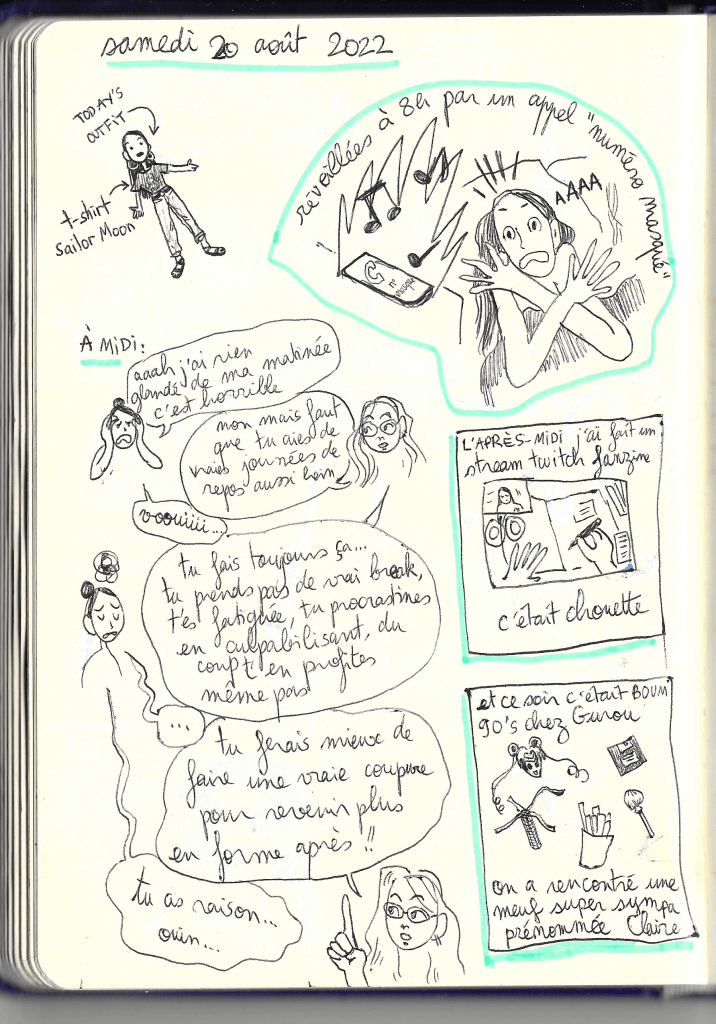 samedi 20 août 2022
TODAY'S
OUTFIT
t-shirt
Sailor Moon
réveillées à 8h par un appel "numéro masqué"
AAAA
n°
masqué
À MIDI:
aaah j'ai rien
glandé de ma matinée
c'est horrible
non mais faut
que tu aies de
vraies journées de
repos aussi hein
voouiiii...
tu fais toujours ça...
tu prends pas de vrai break,
t'es fatiguée, tu procrastines
en culpabilisant, du
coup t'en profites
même pas
...
tu ferais mieux de
faire une vraie coupure
pour revenir plus
en forme après !!
tu as raison...
ouin...
L'APRÈS-MIDI j'ai fait un
stream twitch fanzine
c'était chouette
et ce soir c'était BOUM
90's chez Gurou
on a rencontré une
meuf super sympa
prénommée Claire